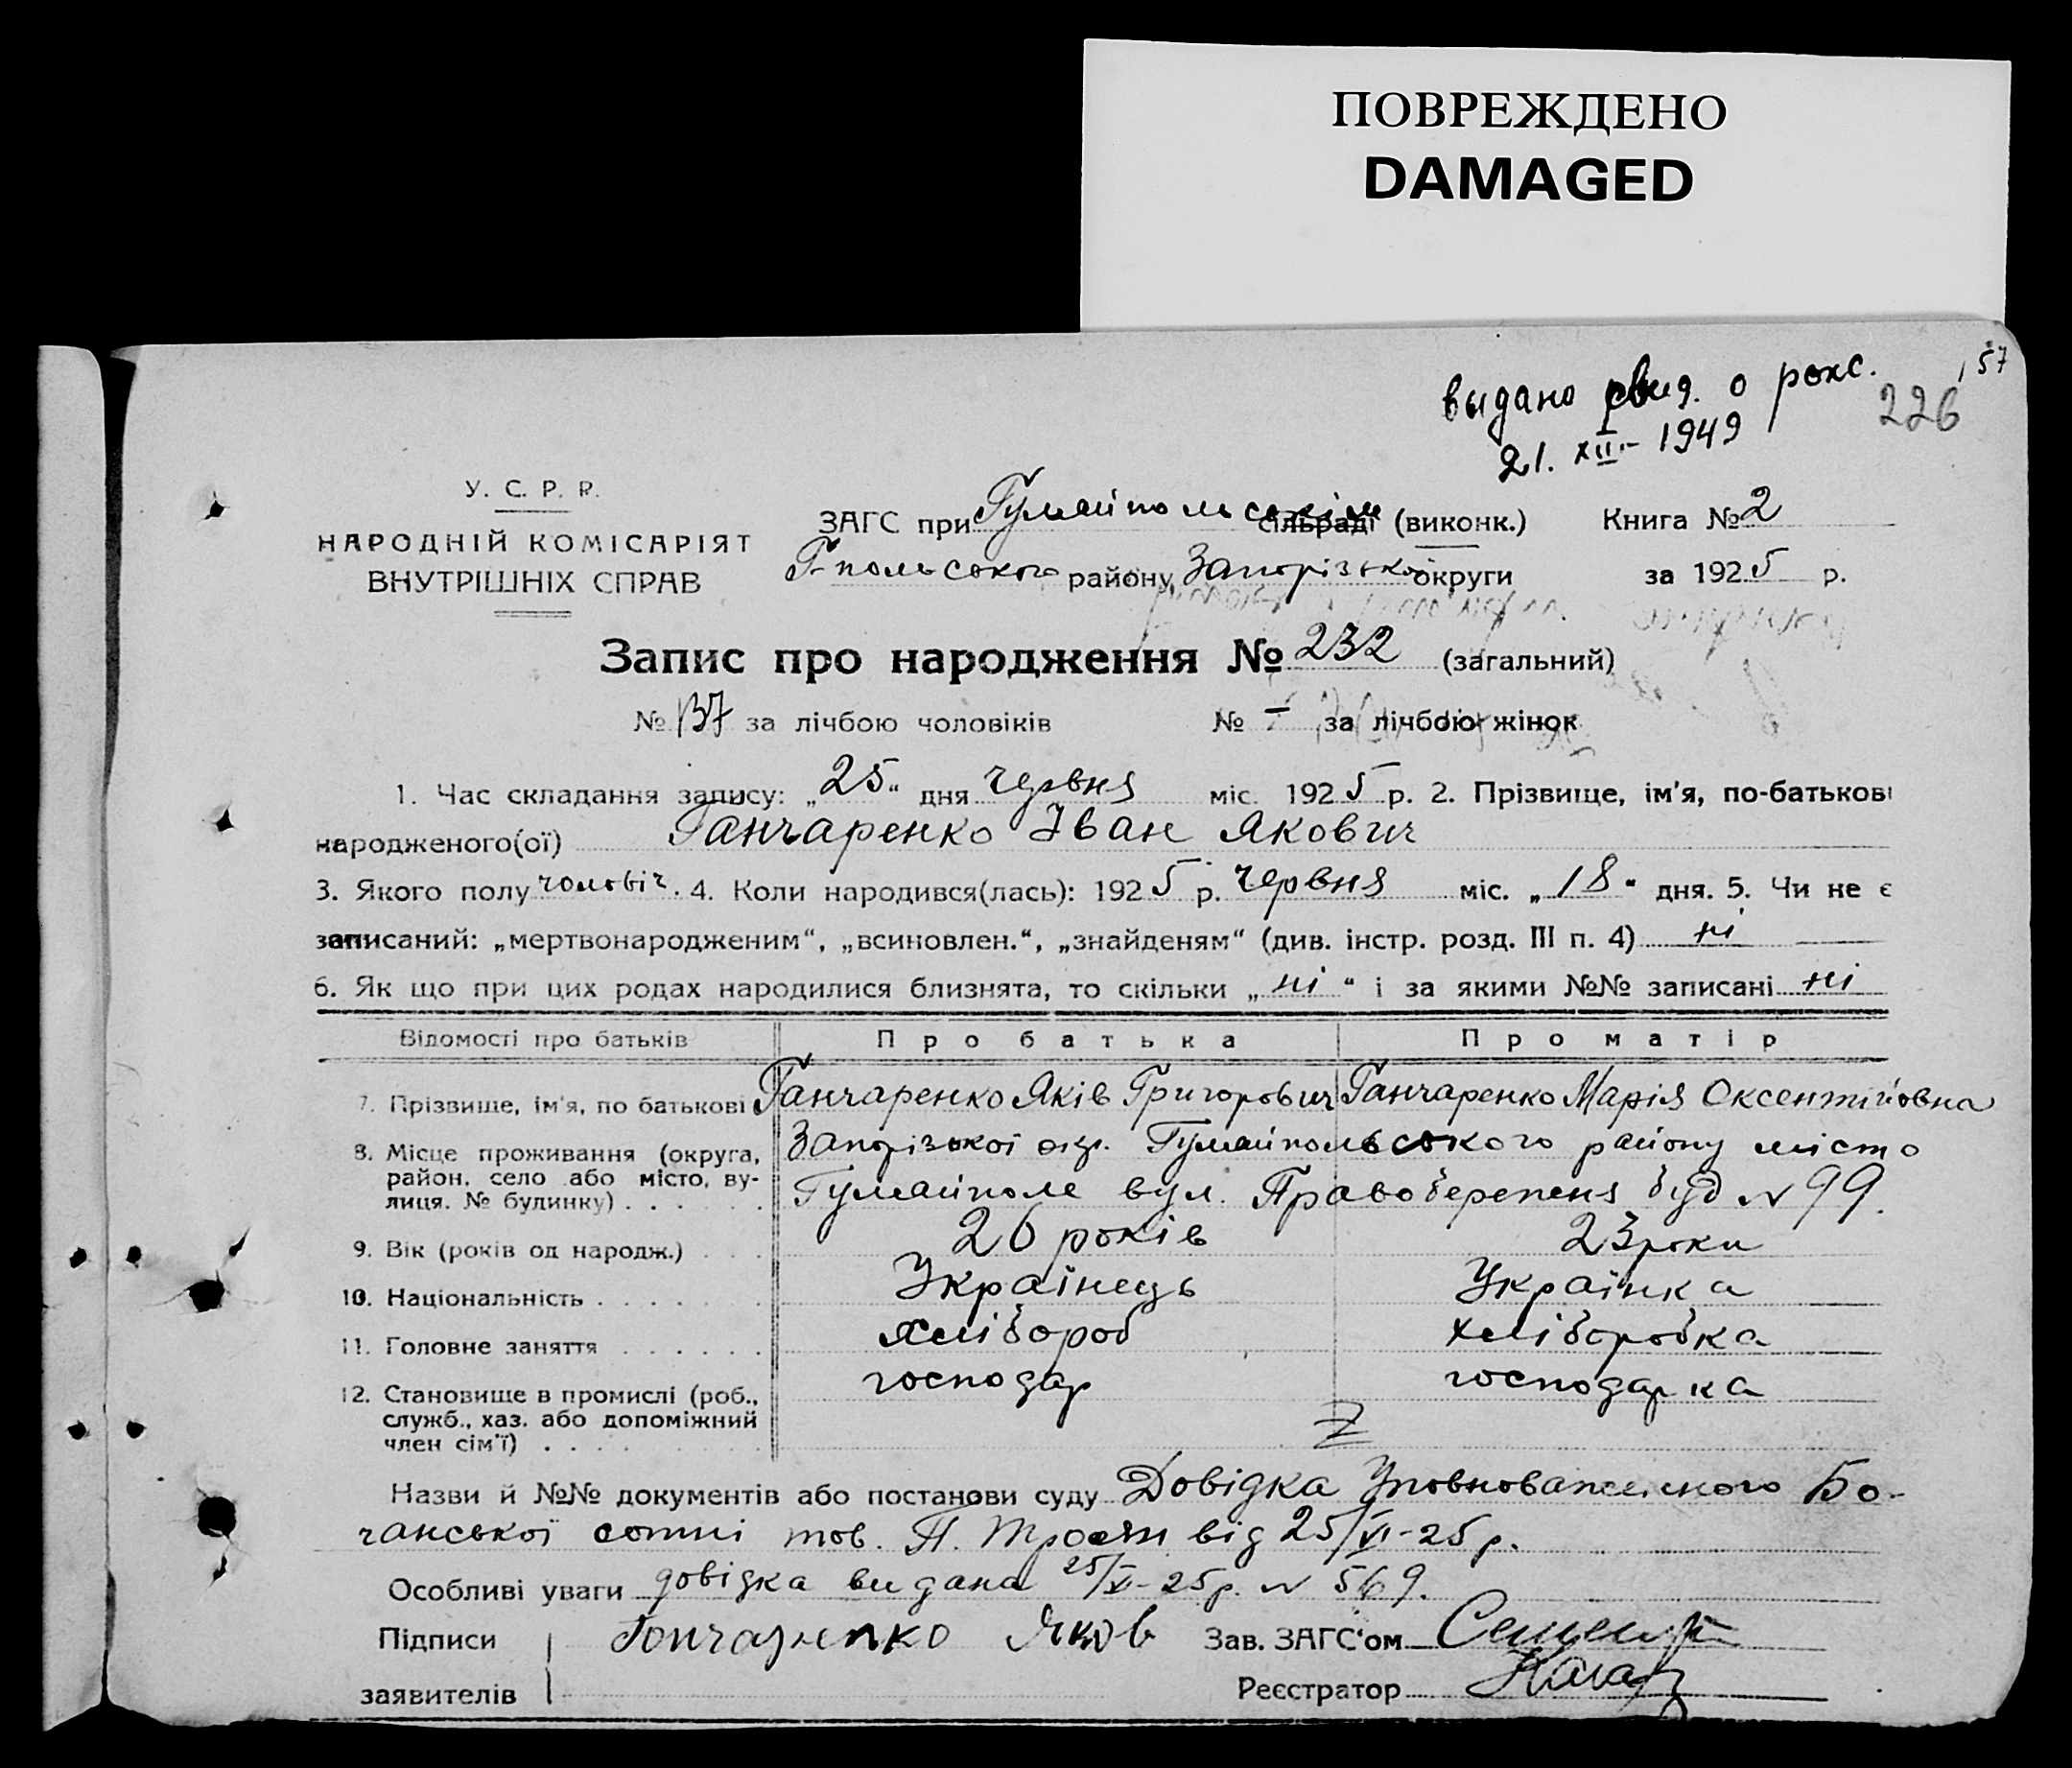 ПОВРЕЖДЕНО
DAMAGED
157
выдано свид. о рожс.
226
21. XII - 1949
У. С. Р. Р.
НАРОДНІЙ КОМІСАРІЯТ
ВНУТРІШНІХ СПРАВ
ЗАГС при Гуляйпольськім сільраді (виконк.) Книга № 2
Г-польського району Запорізької округи за 1925 р.
Запис про народження № 232 (загальний)
№ 137 за лічбою чоловіків № – за лічбою жінок
1. Час складання запису: „25" дня червня міс. 1925 р. 2. Прізвище, ім'я, по-батькові
народженого(ої) Ганчаренко Іван Якович
3. Якого полу чоловіч. 4. Коли народився(лась): 1925 р. червня міс. „18" дня. 5. Чи не є
записаний: „мертвонародженим", „всиновлен.", „знайденям" (див. інстр. розд. III п. 4) ні
6. Як що при цих родах народилися близнята, то скільки „ні" і за якими №№ записані ні
Відомості про батьків Про батька Про матір
7. Прізвище, ім'я, по батькові Ганчаренко Яків Григорович Ганчаренко Марія Оксентійовна
8. Місце проживання (округа, Запорізької окр. Гуляйпольського району місто
район, село або місто, ву-
лиця, № будинку) Гуляйполе вул. Правобережня буд № 99.
9. Вік (років од народж.) 26 років 23 роки
10. Національність Українець Українка
11. Головне заняття хлібороб хліборобка
12. Становище в промислі (роб., господар господарка
служб., хаз. або допоміжний
член сім'ї)
Назви й №№ документів або постанови суду Довідка Уповноваженного Бо-
чанської сотні тов. П. Троян від 25/VI-25 р.
Особливі уваги довідка видана 25/VI-25 р. № 569.
Підписи Гончаренко Яков Зав. ЗАГС'ом
заявителів Реєстратор